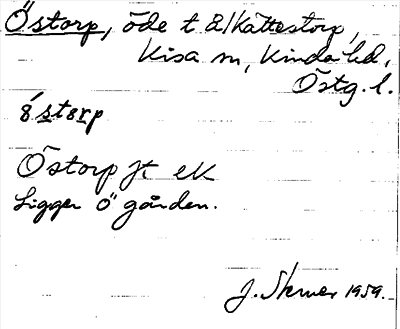 Östorp, öde t 2/Kättestorp,
Kisa sn, Kinda hd,
Östg. l.
östorp
Östorp jt ek
Ligger ö gården.
J. Skruv 1959.